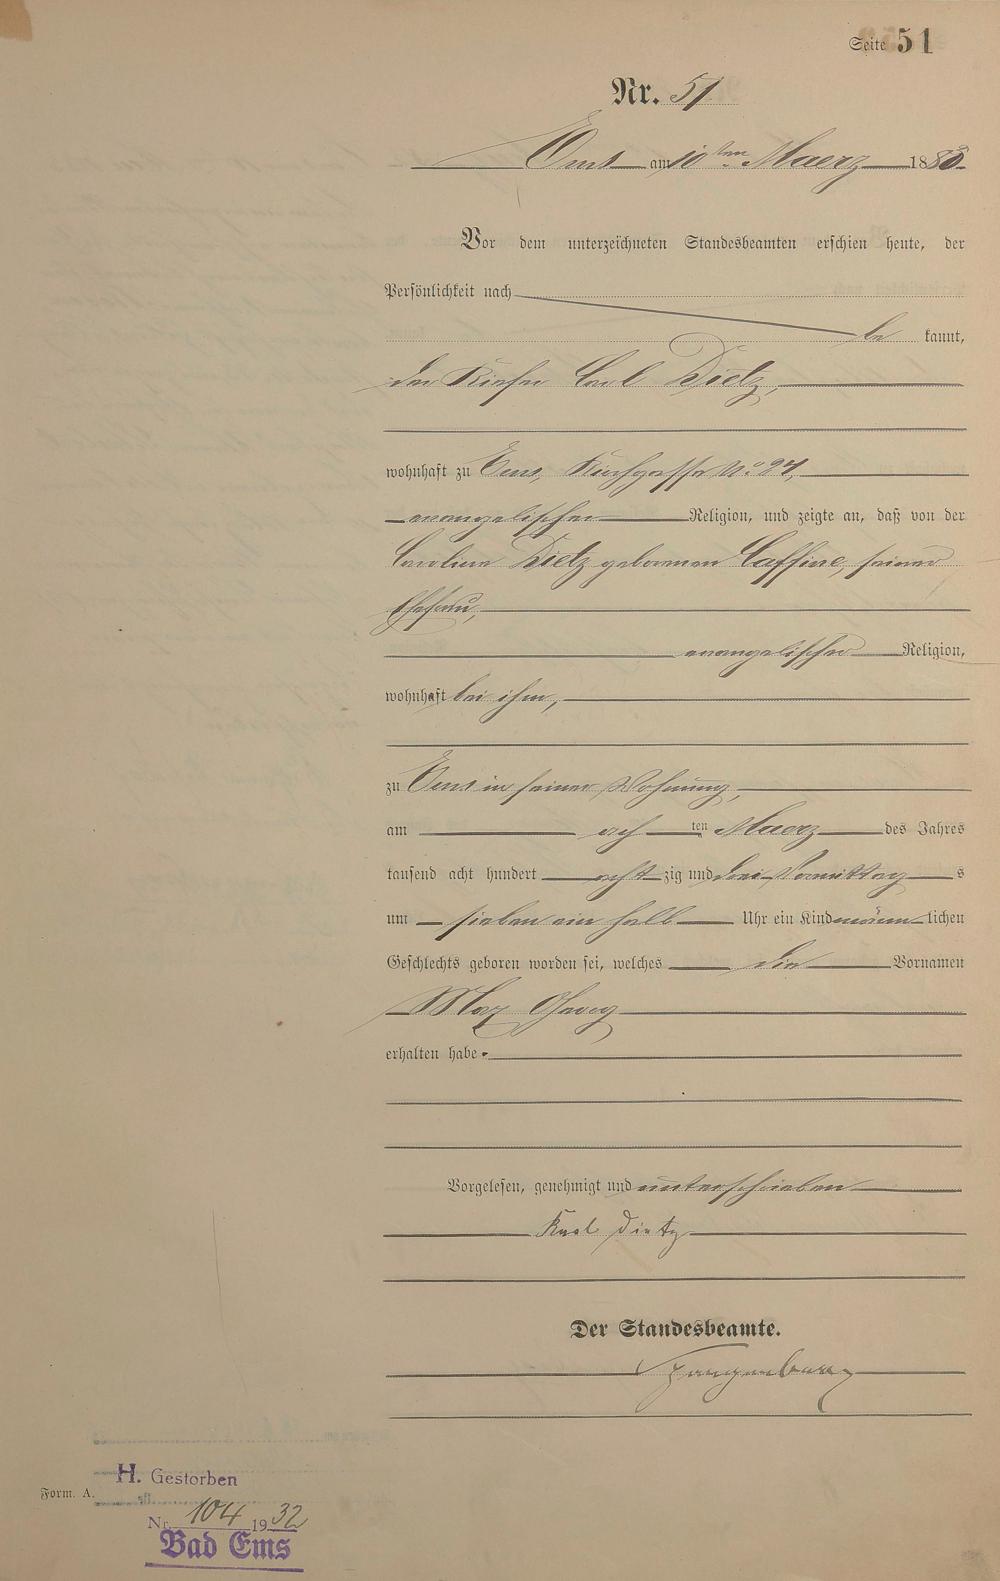 Seite 51
Nr. 51
Ems am 10ten Maerz 1883.
Vor dem unterzeichneten Standesbeamten erschien heute, der
Persönlichkeit nach
be kannt,
der Kiefer Carl Dietz,
wohnhaft zu Ems, Kirchgasse No 24,
evangelischer Religion, und zeigte an, daß von der
Caroline Dietz geborenen Caffine, seiner
Ehefrau,
evangelischer Religion,
wohnhaft bei ihm,
zu Ems in seiner Wohnung,
am ach ten Maerz des Jahres
tausend acht hundert acht zig und drei Vormittag s
um sieben ein halb Uhr ein Kind männ lichen
Geschlechts geboren worden sei, welches die Vornamen
Max Georg
erhalten habe.
Vorgelesen, genehmigt und unterschrieben
Karl Dietz
Der Standesbeamte.
Form. A.
H. Gestorben
Nr. 104 1932
Bad Ems